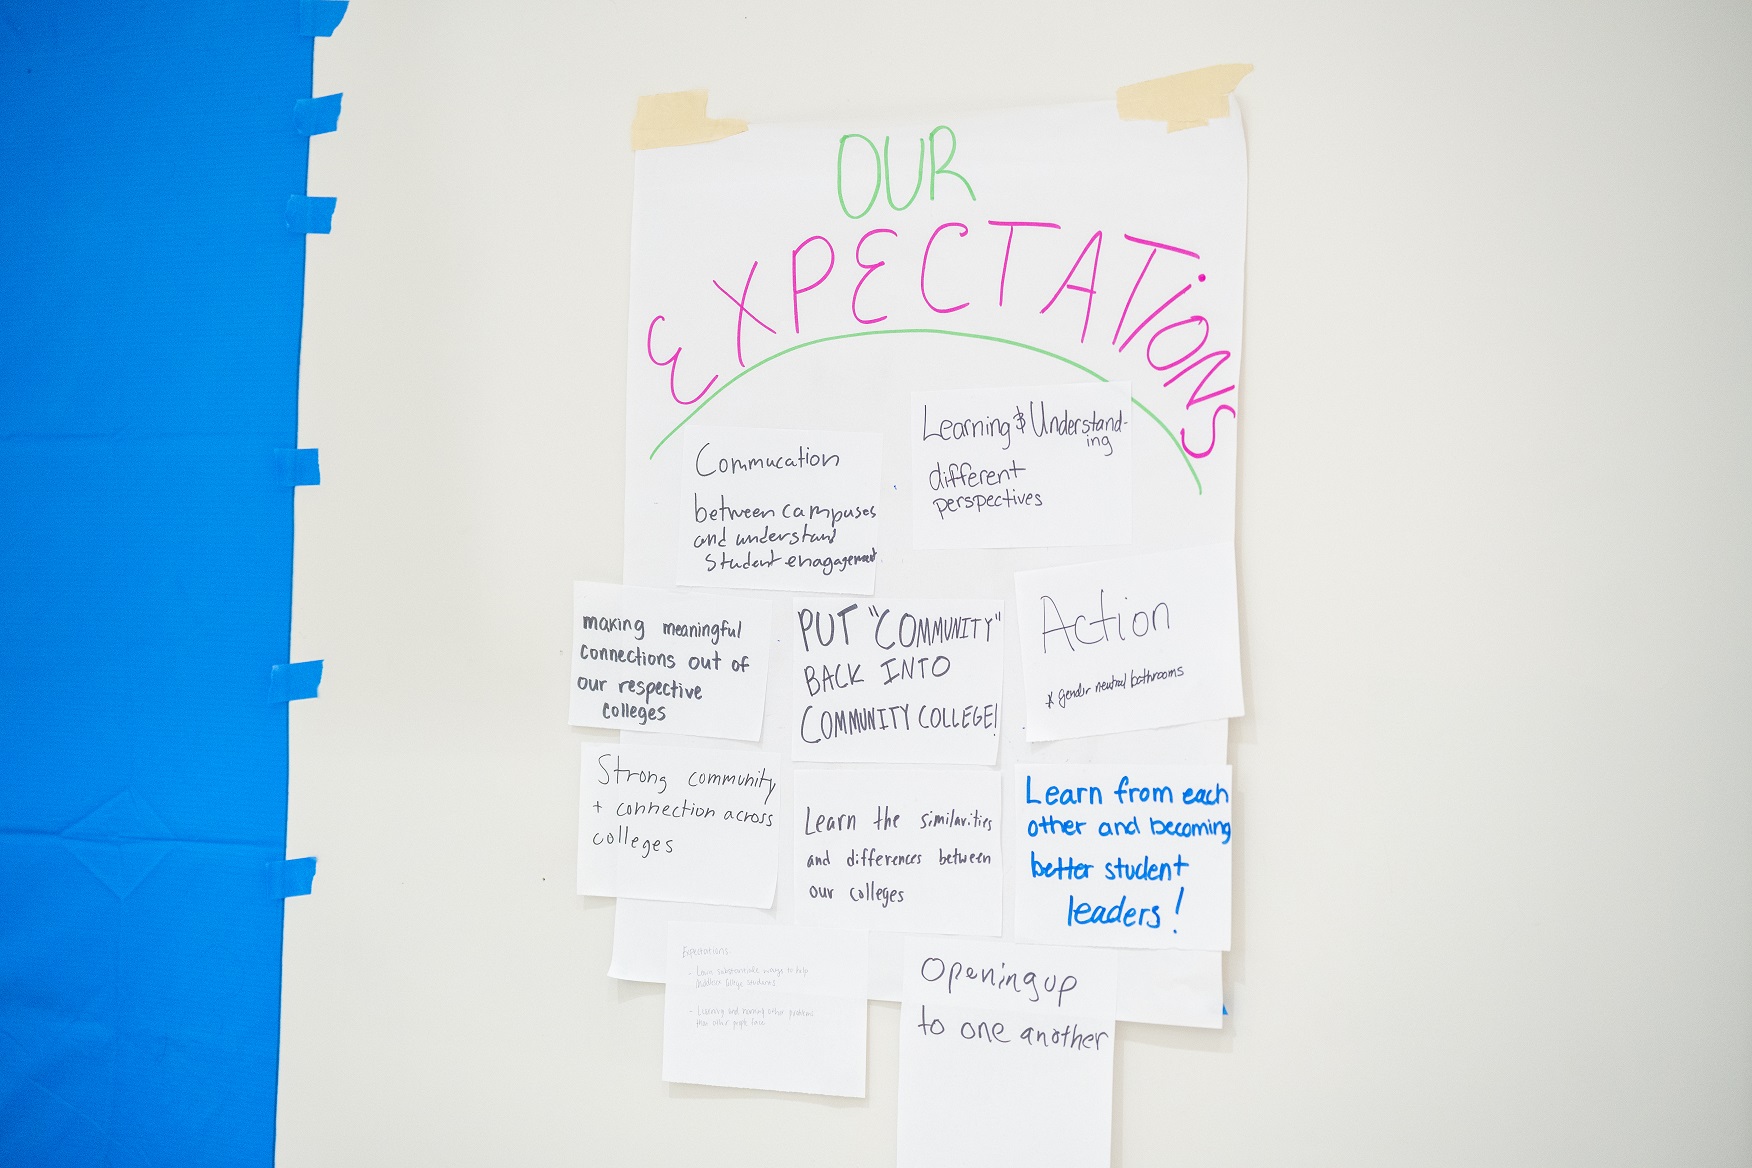 OUR
EXPECTATiONS
Commucation
between campuses
and understand
student enagagement
Learning & Understand-
ing
different
perspectives
making meaningful
connections out of
our respective
colleges
PUT "COMMUNITY"
BACK INTO
COMMUNITY COLLEGE!
Action
* gender neutral bathrooms
Strong community
+ connection across
colleges
Learn the similarities
and differences between
our colleges
Learn from each
other and becoming
better student
leaders!
Expectations
- Learn substantiable ways to help
students
- Learning and other problems
that other people face
Opening up
to one another